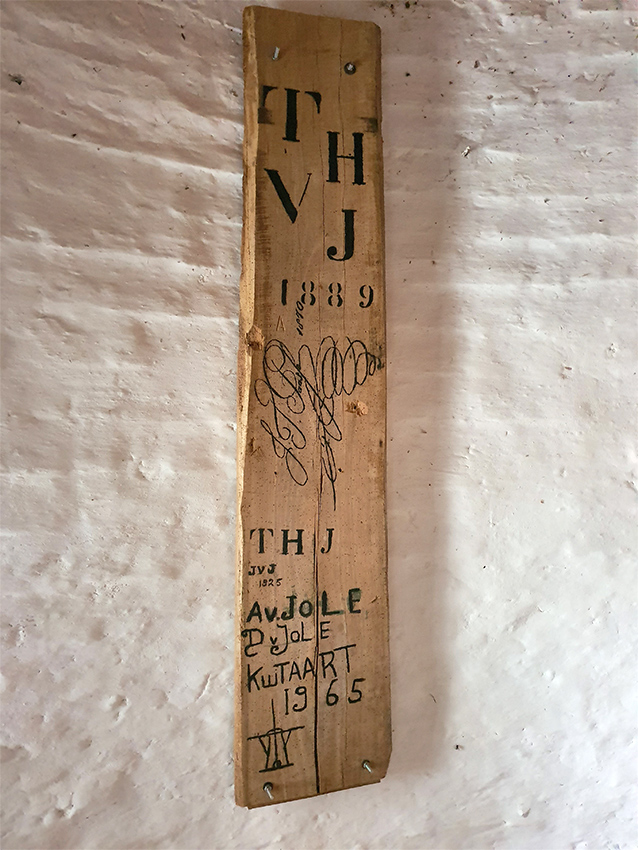 T
H
V
J
1889
THJ
JVJ
1925
Av.JOLE
D v JOLE
KwTAART
1965